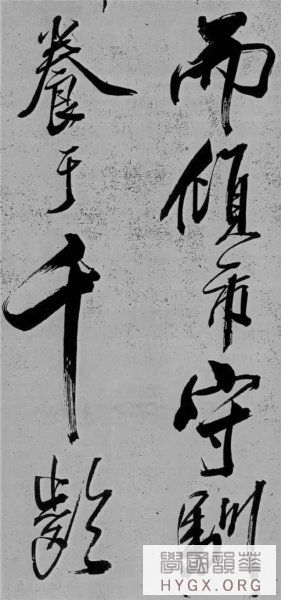 而傾市守馴
養于千齡
華韻國學
HYGX.ORG